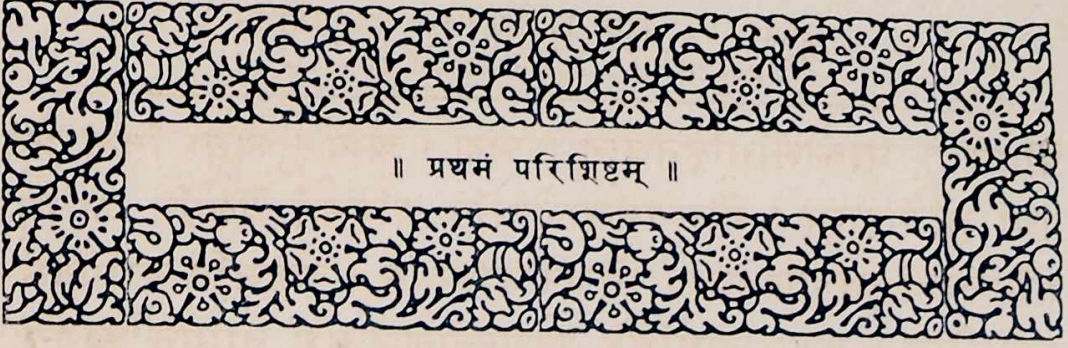 ॥ प्रथमं परिशिष्टम् ॥